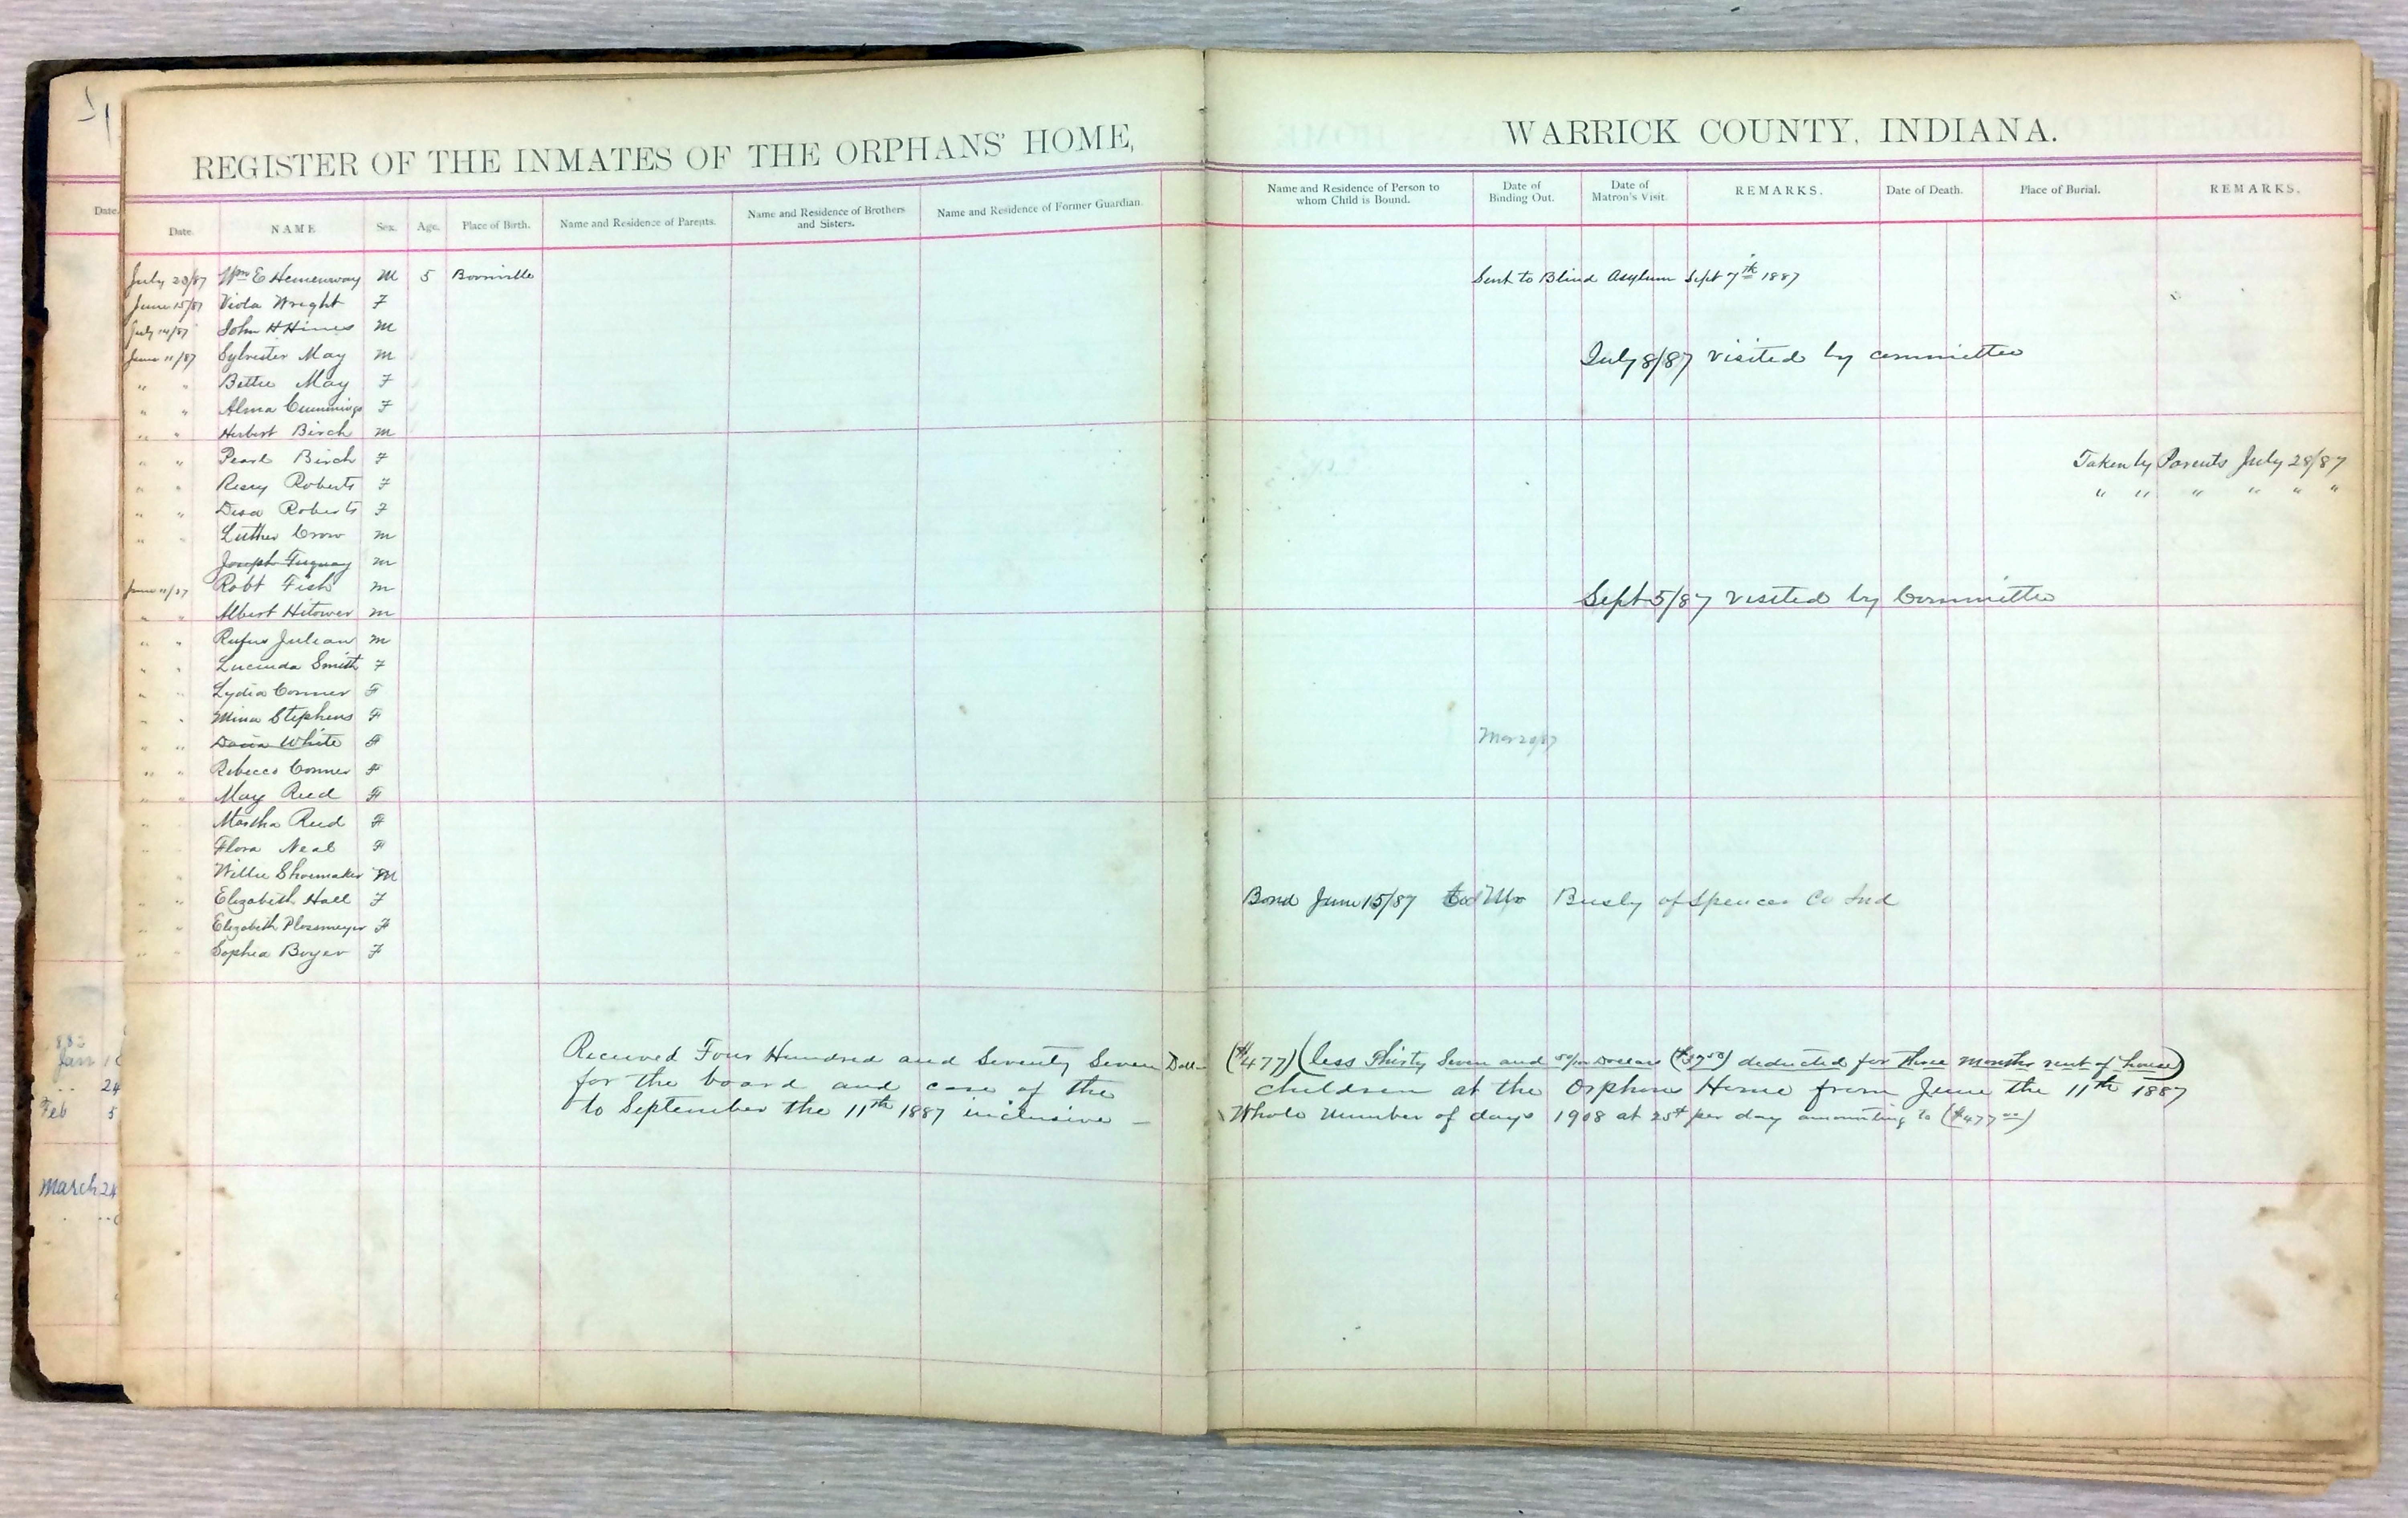 REGISTER OF THE INMATES OF THE ORPHANS' HOME,
WARRICK COUNTY, INDIANA.
Date.
Date. NAME Sex. Age. Place of Birth. Name and Residence of Parents. Name and Residence of Brothers and Sisters. Name and Residence of Former Guardian.
Name and Residence of Person to whom Child is Bound. Date of Binding Out. Date of Matron's Visit. REMARKS. Date of Death. Place of Burial. REMARKS.
July 23/87 Wm E Hemenway M 5 Boonville Sent to Blind Asylum Sept 7th 1887
June 15/87 Viola Wright F
July 14/87 John H Hines M
June 11/87 Sylvester May M July 8/87 visited by committee
" " Bettie May F
" " Alma Cummings F
" " Herbert Birch M
" " Pearl Birch F Taken by Parents July 28/87
" " Roberts F " " " " " "
" " Roberts F
" " Luther Crow M
Joseph Fuquay M
June 11/87 Robt Fish M Sept 5/87 visited by Committee
" " Albert Hitower M
" " Rufus Julian M
" " Lucinda Smith F
" " Lydia Conner F
" " Mina Stephens F
" " White F Mar 20/87
" " Rebecca Conner F
" " May Reed F
" " Martha Reed F
" " Flora Neal F
" Willie Shoemaker M
" " Elizabeth Hall F Bond June 15/87 Busly of Spencer Co Ind
" " Elizabeth Plossmeyer F
" " Sophia Boyer F
Received Four Hundred and Seventy Seven Doll– ($477) (less Thirty Seven and 50/100 Dollars ($37 50) deducted for three months rent of house)
for the board and care of the children at the Orphans Home from June the 11th 1887
to September the 11th 1887 inclusive – Whole number of days 1908 at 25¢ per day amounting to ($477 00)
Jan
24
Feb 5
March 24